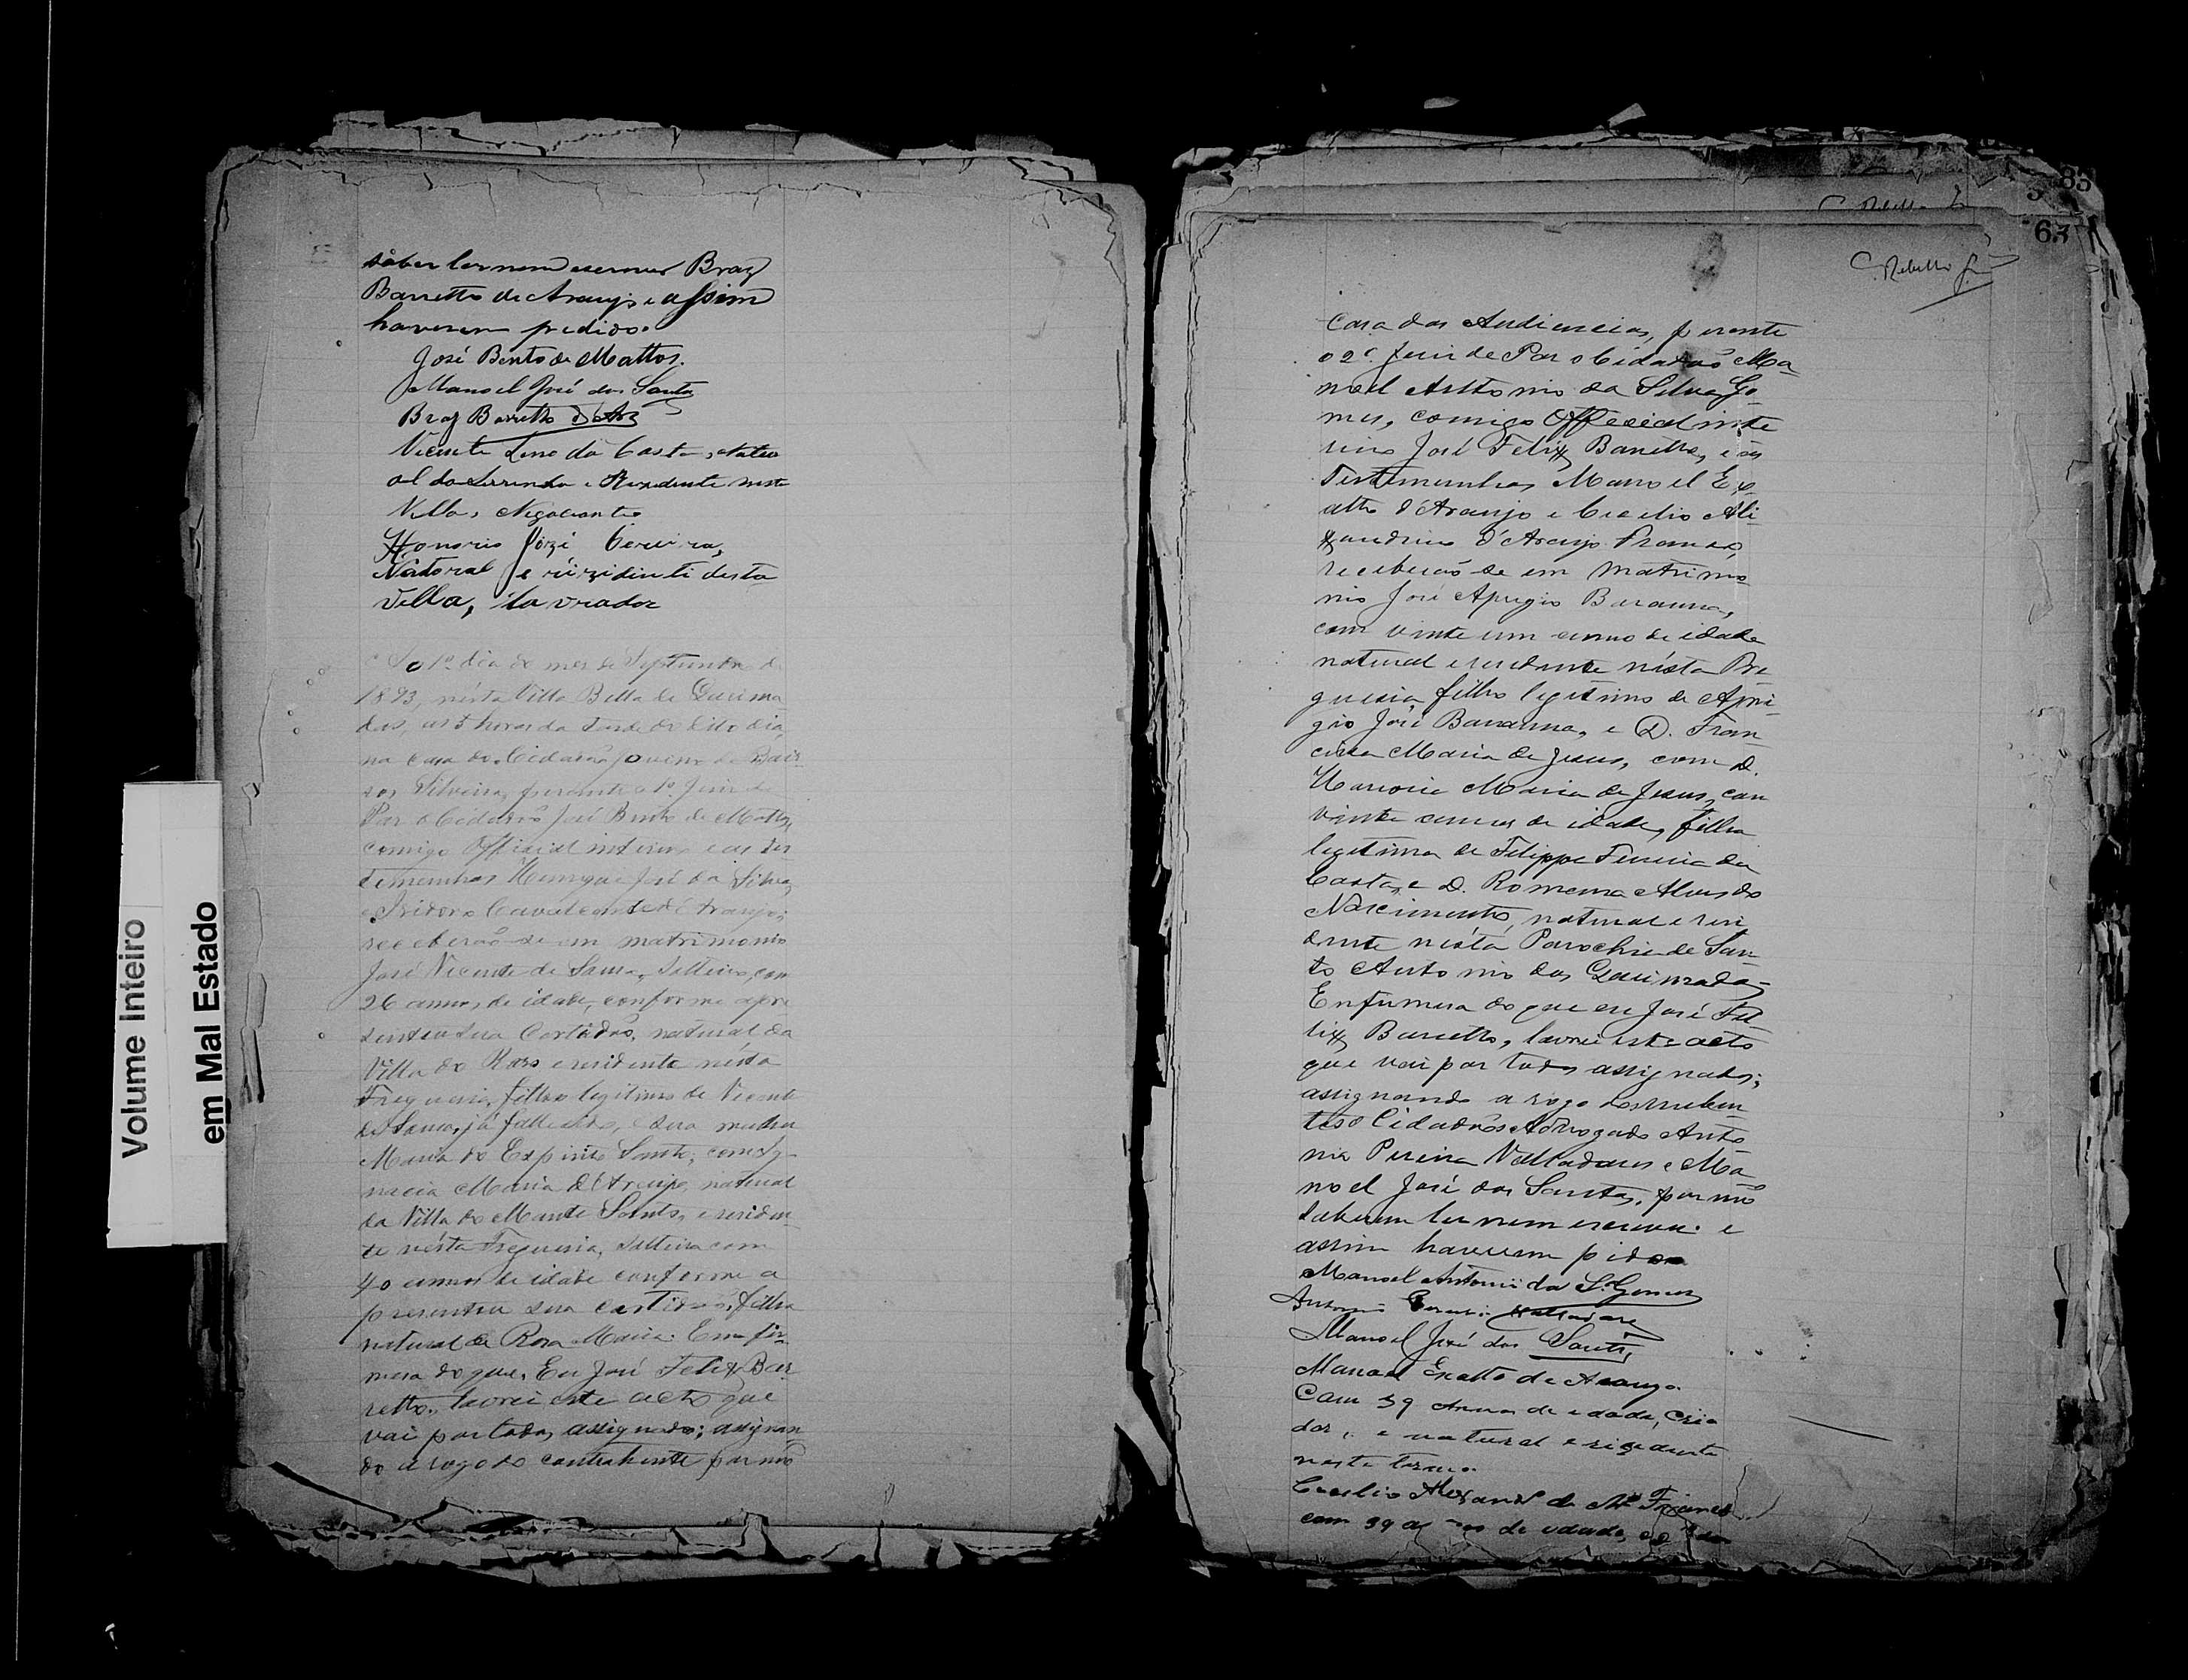 saber ler nem escrever Braz
Barretto de Araujo e assim
haverem pedido.
José Bento de Mattos.
Manoel José dos Santos
Braz Barretto
Vicente Lino da Costa, Natur
al do Serrinha e Rezidente nesta
Villa, Negociante
Honorio José Cerveira,
Natoral e rizidinti desta
Villa, lavrador
Ao 1º dia do mes de Septembro de
1893, nésta Villa Bella de Queima
das, as 5 horas da tarde do dito dia,
na casa do Cidadão Jovino de Bair
ros Silveira, perante o 1º Juiz de
Paz o Cidadão José Bento de Mattos,
comigo Official interino e as tes
temunhas Henrique José da Silva,
e Izidoro Cavalcante d'Araujo;
receberão-se em matrimonio
José Vicente de Sousa, Solteiro, com
26 annos de idade, conforme apre
sentou sua Certidão, natural da
Villa do Razo e residente nésta
Freguesia, filho legitimo de Vicente
de Sousa, já fallecido, e sua mulher
Maria do Espirito Santo; com Ig-
nacia Maria d'Araujo, natural
da Villa do Monte Santo, e residen-
te nésta Freguesia, Solteira com
40 annos de idade conforme a
presentou sua certidão, filha
natural de Rosa Maria. Em fir-
mesa do que, Eu José Felix Bar
retto. lavrei este acto que
vai por todos assignado; assignan
do a rogo do contrahente por não
Volume Inteiro
em Mal Estado
83
63
C. Rebello
Casa das Audiencias, perante
o 2º. Juiz de Paz o Cidadão Ma-
noel Anttonio da Silva Go-
mes, comigo Official inte
rino José Felix Barretto, e as
Testemunhas Manoel Ex-
alto d'Araujo e Cecilio Ali-
xandrino d'Araujo Franco,
receberão-se em matrimo
nio José Aprigio Barauna,
com vinte um annos de idade
natural e residente nésta Fre
guesia filho legitimo de Apri-
gio José Barauna, e D. Fran-
cisca Maria de Jesus, com D.
Maria de Jesus, com
vinte annos de idade, filha
legitima de Filippe Ferreira da
Costa, e D. Romana Alves do
Nascimento, natural e resi
dente nésta Parochia de San
to Antonio das Queimadas
Enfirmesa do que eu José Fe-
lix Barretto, lavrei este acto
que vai por todos assignados;
assignando a rogo dos nuben
tes o Cidadãos Advogado Anto
nio Pereira Valladares e Ma-
noel José dos Santos, por não
saberem ler nem escrever e
assim haverem pido
Manoel Antonio da S.ª Gomes
Antonio Pereira Valladares
Manoel José dos Santos,
Manoel Exalto de Araujo.
Com 39 Annos de edade, Cria
dor, e natural e rizedente
neste termo.
com 39 annos de edade,